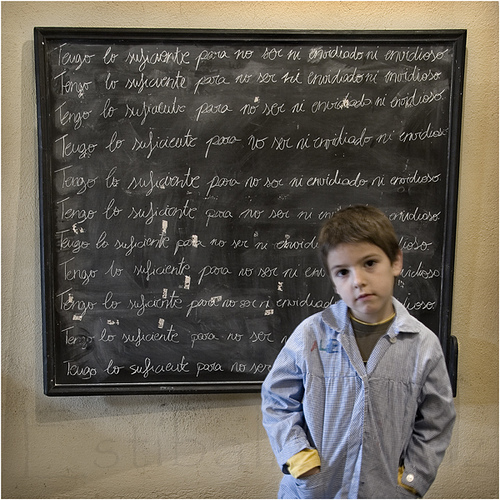 Tengo lo suficiente para no ser envidiado ni envidioso
Tengo lo suficiente para no ser ni envidiado ni envidioso.
Tengo lo suficiente para no ser ni envidiado ni envidioso.
Tengo lo suficiente para no ser ni envidiado ni envidioso.
Tengo lo suficiente para no ser ni envidiado ni envidioso.
Tengo lo suficiente para no ser ni envidiado ni envidioso.
Tengo lo suficiente para no ser ni envidioso.
Tengo lo suficiente para no ser ni envidioso.
Tengo lo suficiente para no ser ni envidiado envidioso.
Tengo lo suficiente para no ser
Tengo lo suficiente para no ser